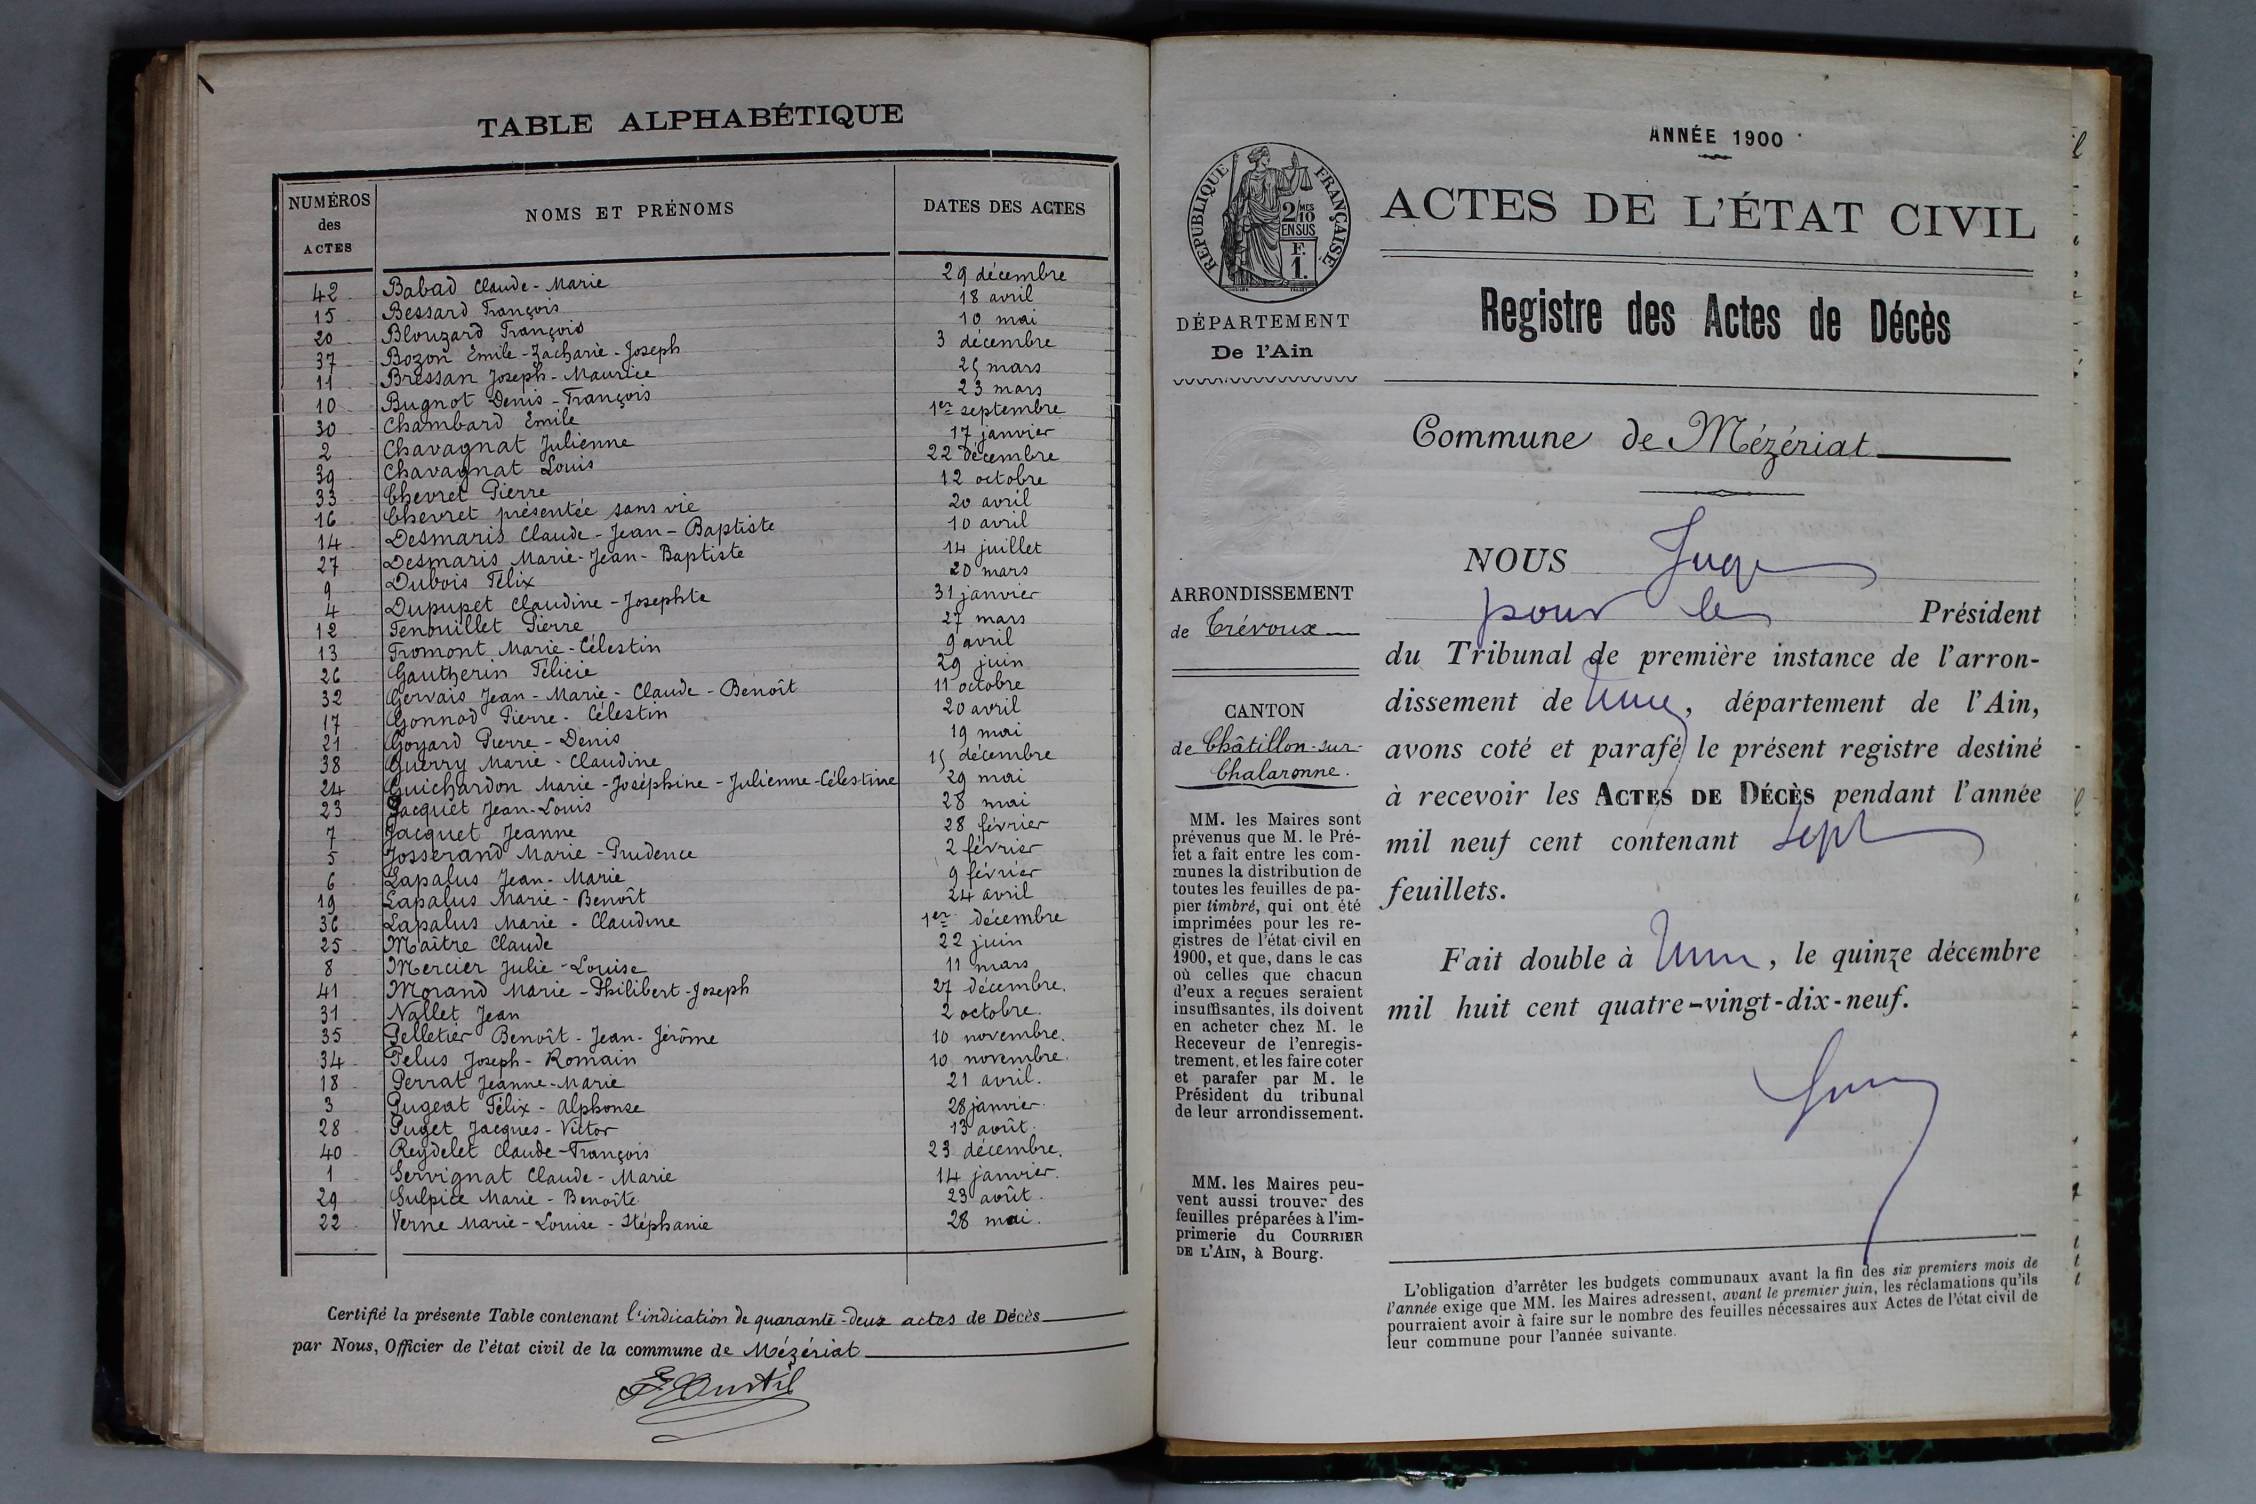 TABLE ALPHABÉTIQUE
NUMÉROS des ACTES NOMS ET PRÉNOMS DATES DES ACTES
42 Babad Claude-Marie 29 décembre
15 Bessard François 18 avril
20 Blouzard François 10 mai
37 Bozon Emile-Zacharie-Joseph 3 décembre
11 Bressan Joseph-Maurice 25 mars
10 Bugnot Denis-François 23 mars
30 Chambard Emile 1er septembre
2 Chavagnat Julienne 17 janvier
39 Chavagnat Louis 22 décembre
33 Chevret Pierre 12 octobre
16 Chevret présentée sans vie 20 avril
14 Desmaris Claude-Jean-Baptiste 10 avril
27 Desmaris Marie-Jean-Baptiste 14 juillet
9 Dubois Félix 20 mars
4 Dupupet Claudine-Josephte 31 janvier
12 Fenouillet Pierre 27 mars
13 Fromont Marie-Célestin 9 avril
26 Gautherin Félicie 29 juin
32 Gervais Jean-Marie-Claude-Benoît 11 octobre
17 Gonnod Pierre-Célestin 20 avril
21 Goyard Pierre-Denis 19 mai
38 Guerry Marie-Claudine 15 décembre
24 Guichardon Marie-Joséphine-Julienne-Célestine 29 mai
23 Jacquet Jean-Louis 28 mai
7 Jacquet Jeanne 28 février
5 Josserand Marie-Prudence 2 février
6 Lapalus Jean-Marie 9 février
19 Lapalus Marie-Benoît 24 avril
36 Lapalus Marie-Claudine 1er décembre
25 Maître Claude 22 juin
8 Mercier Julie-Louise 11 mars
41 Morand Marie-Philibert-Joseph 27 décembre.
31 Nallet Jean 2 octobre.
35 Pelletier Benoît-Jean-Jérôme 10 novembre.
34 Pelus Joseph-Romain 10 novembre.
18 Perrat Jeanne-Marie 21 avril.
3 Pugeat Félix-Alphonse 28 janvier.
28 Puget Jacques-Victor 13 août.
40 Reydelet Claude-François 23 décembre.
1 Servignat Claude-Marie 14 janvier.
29 Sulpice Marie-Benoîte 23 août.
22 Verne Marie-Louise-Stéphanie 28 mai.
Certifié la présente Table contenant l'indication de quarante-deux actes de Décès
par Nous, Officier de l'état civil de la commune de Mézériat
ANNÉE 1900
RÉPUBLIQUE FRANÇAISE
2/10 MES
EN SUS
F.
1.
DÉPARTEMENT
De l'Ain
ARRONDISSEMENT
de Trévoux
CANTON
de Châtillon-sur-
Chalaronne.
MM. les Maires sont
prévenus que M. le Pré-
fet a fait entre les com-
munes la distribution de
toutes les feuilles de pa-
pier timbré, qui ont été
imprimées pour les re-
gistres de l'état civil en
1900, et que, dans le cas
où celles que chacun
d'eux a reçues seraient
insuffisantes, ils doivent
en acheter chez M. le
Receveur de l'enregis-
trement, et les faire coter
et parafer par M. le
Président du tribunal
de leur arrondissement.
MM. les Maires peu-
vent aussi trouver des
feuilles préparées à l'im-
primerie du COURRIER
DE L'AIN, à Bourg.
ACTES DE L'ÉTAT CIVIL
Registre des Actes de Décès
Commune de Mézériat
NOUS Juge
pour le Président
du Tribunal de première instance de l'arron-
dissement de , département de l'Ain,
avons coté et parafé le présent registre destiné
à recevoir les ACTES DE DÉCÈS pendant l'année
mil neuf cent contenant sept
feuillets.
Fait double à , le quinze décembre
mil huit cent quatre-vingt-dix-neuf.
L'obligation d'arrêter les budgets communaux avant la fin des six premiers mois de
l'année exige que MM. les Maires adressent, avant le premier juin, les réclamations qu'ils
pourraient avoir à faire sur le nombre des feuilles nécessaires aux Actes de l'état civil de
leur commune pour l'année suivante.